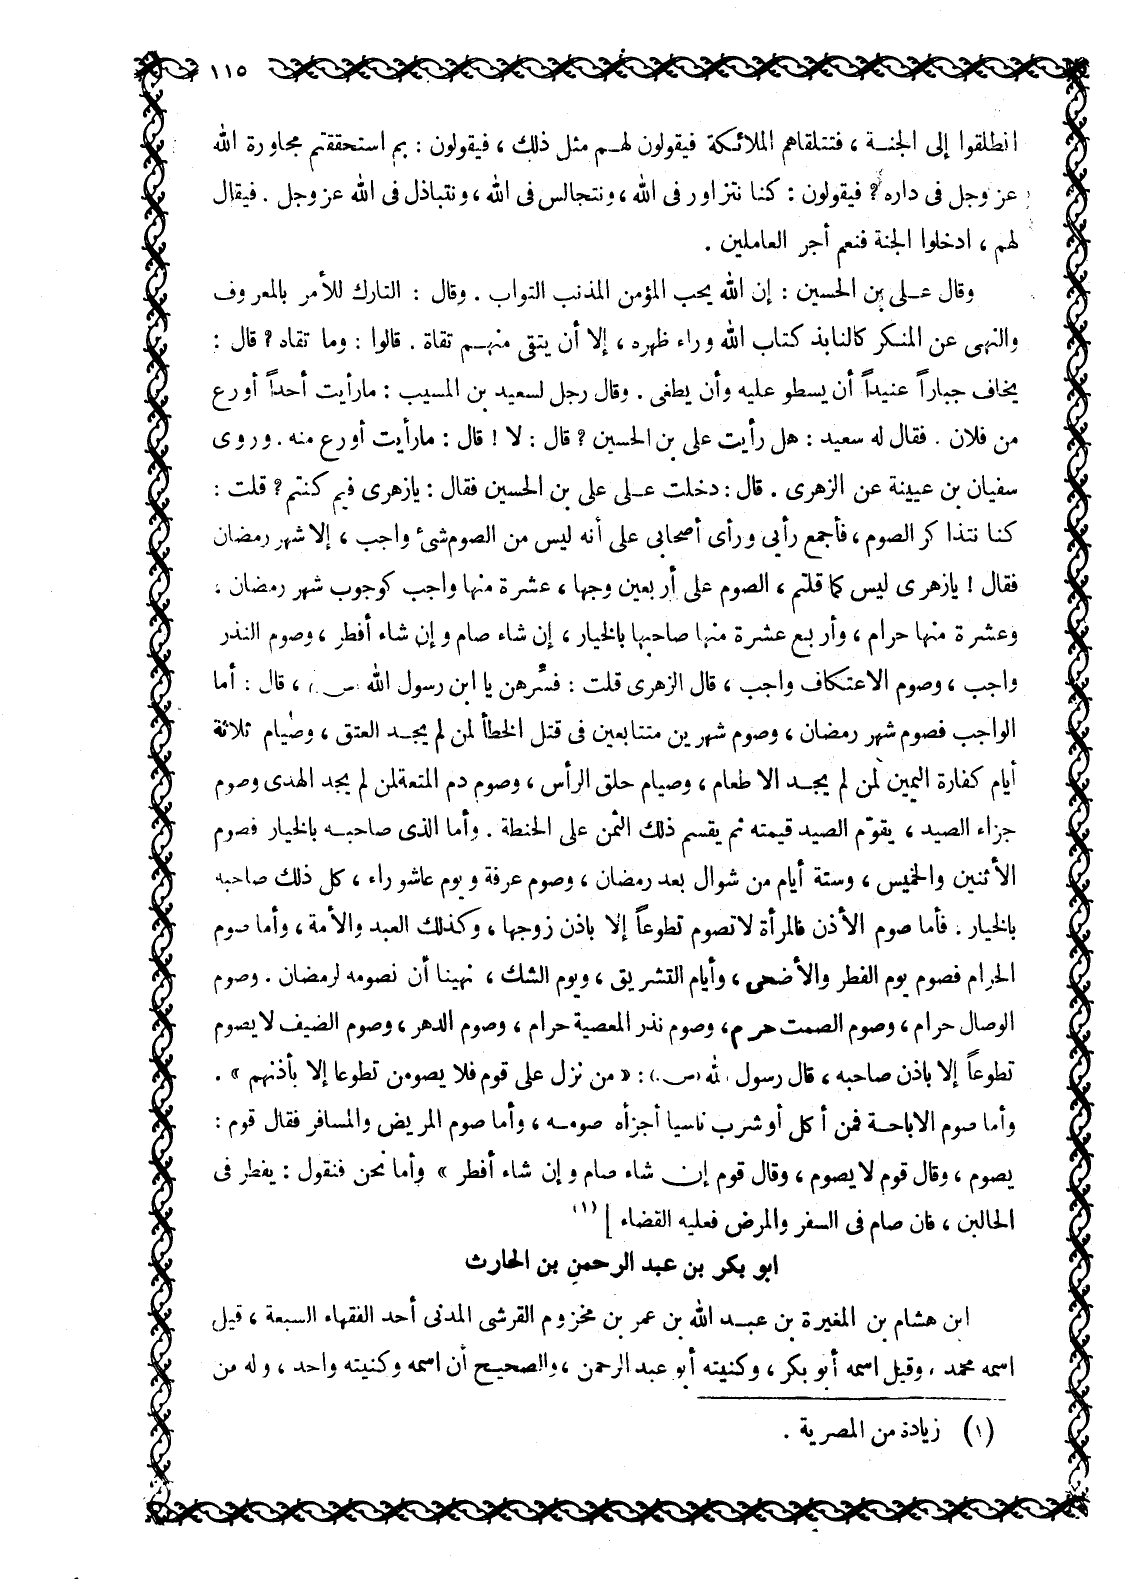 ١١٥
انطلقوا إلى الجنـة ، فتتلقاهم الملائكة فيقولون لهـم مثل ذلك ، فيقولون : بم استحققتم مجاورة الله
عز وجل فى داره ؟ فيقولون : كنا نتزاور فى الله ، ونتجالس فى الله ، ونتباذل فى الله عز وجل . فيقال
لهم ، ادخلوا الجنة فنعم أجر العاملين .
وقال عـلى بن الحسين : إن الله يحب المؤمن المذنب التواب . وقال : التارك للأمر بالمعروف
والنهى عن المنكر كالنابذ كتاب الله وراء ظهره ، إلا أن يتقى منهـم تقاة . قالوا : وما تقاه ؟ قال :
يخاف جباراً عنيداً أن يسطو عليه وأن يطغى . وقال رجل لسعيد بن المسيب : مارأيت أحداً أورع
من فلان . فقال له سعيد : هل رأيت على بن الحسين ؟ قال : لا ! قال : مارأيت أورع منه . وروى
سفيان بن عيينة عن الزهرى . قال : دخلت عـلى على بن الحسين فقال : يازهرى فيم كنتم ؟ قلت :
كنا نتذاكر الصوم ، فأجمع رأيى ورأى أصحابى على أنه ليس من الصوم شئ واجب ، إلا شهر رمضان
فقال ! يازهرى ليس كما قلتم ، الصوم على أربعين وجها ، عشرة منها واجب كوجوب شهر رمضان ،
وعشرة منها حرام ، وأربع عشرة منها صاحبها بالخيار ، إن شاء صام وإن شاء أفطر ، وصوم النذر
واجب ، وصوم الاعتكاف واجب ، قال الزهرى قلت : فسّرهن يا ابن رسول الله (ص) ، قال : أما
الواجب فصوم شهر رمضان ، وصوم شهرين متتابعين فى قتل الخطأ لمن لم يجـد العتق ، وصيام ثلاثة
أيام كفارة اليمين لمن لم يجـد الاطعام ، وصيام حلق الرأس ، وصوم دم المتعة لمن لم يجد الهدى وصوم
جزاء الصيد ، يقوّم الصيد قيمته ثم يقسم ذلك الثمن على الحنطة . وأما الذى صاحبـه بالخيار فصوم
الأثنين والخميس ، وستة أيام من شوال بعد رمضان ، وصوم عرفة ويوم عاشوراء ، كل ذلك صاحبه
بالخيار . فأما صوم الأذن فالمرأة لاتصوم تطوعاً إلا باذن زوجها ، وكذلك العبد والأمة ، وأما صوم
الحرام فصوم يوم الفطر والأضحى ، وأيام التشريق ، ويوم الشك ، نهينا أن نصومه لرمضان . وصوم
الوصال حرام ، وصوم الصمت حرام ، وصوم نذر المعصية حرام ، وصوم الدهر ، وصوم الضيف لا يصوم
تطوعاً إلا باذن صاحبه ، قال رسول الله (ص) : « من نزل على قوم فلا يصومن تطوعا إلا بأذنهم » .
وأما صوم الاباحـة فمن أكل أو شرب ناسيا أجزأه صومـه ، وأما صوم المريض والمسافر فقال قوم :
يصوم ، وقال قوم لا يصوم ، وقال قوم إن شاء صام وإن شاء أفطر » وأما نحن فنقول : يفطر فى
الحالين ، فان صام فى السفر والمرض فعليه القضاء ] (١)
ابو بكر بن عبد الرحمن بن الحارث
ابن هشام بن المغيرة بن عبـد الله بن عمر بن مخزوم القرشى المدنى أحد الفقهاء السبعة ، قيل
اسمه محمد ، وقيل اسمه أبو بكر ، وكنيته أبو عبد الرحمن ، والصحيح أن اسمه وكنيته واحد ، وله من
(١) زيادة من المصرية .